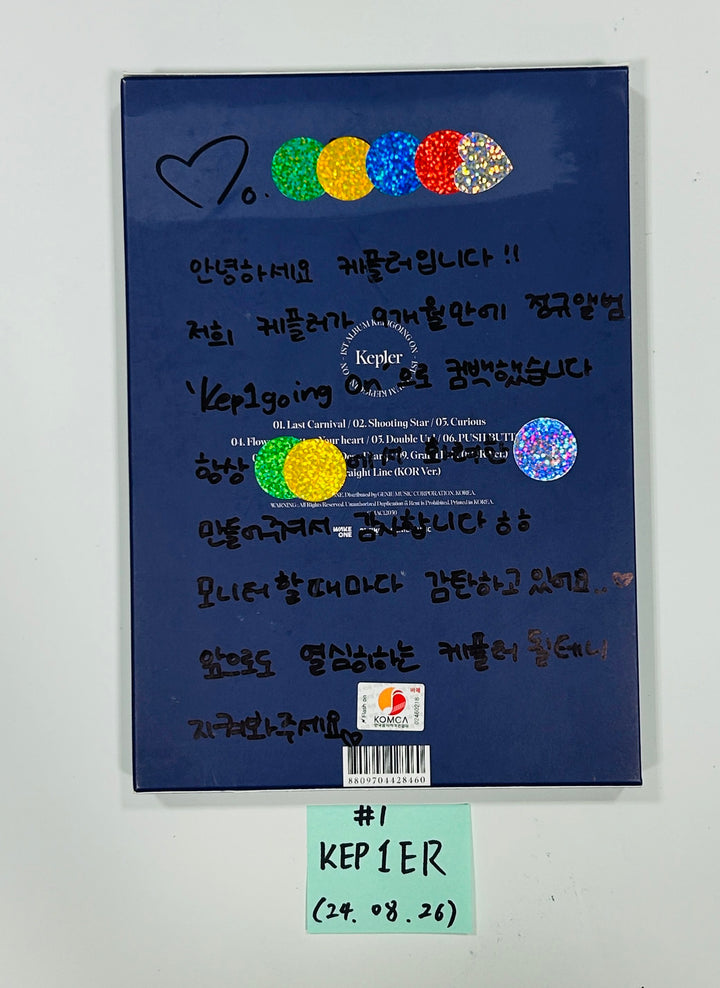 o.
안녕하세요 케플러입니다 !!
저희 케플러가 9개월만에 정규앨범
- 1ST ALBUM KEP1GOING ON -
Kep1er
'Kep1going On'으로 컴백했습니다
01. Last Carnival / 02. Shooting Star / 03. Curious
04. Your heart / 05. Double Up! / 06. PUSH
항상 에서
Straight Line (KOR Ver.)
Distributed by GENIE MUSIC CORPORATION, KOREA.
WARNING : All Rights Reserved. Unauthorized Duplication & Rent is Prohibited. Printed in KOREA.
만들어주셔서 감사합니다 ㅎㅎ
WAKE ONE
모니터할때마다 감탄하고있어요..
앞으로도 열심히하는 케플러 될테니
지켜봐주세요
KOMCA
8809704428460
#1
KEP1ER
(24. 08. 26)